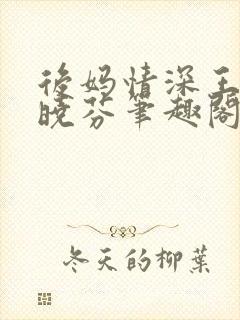 後妈情深王
晓芬笔趣阁
冬天的柳葉